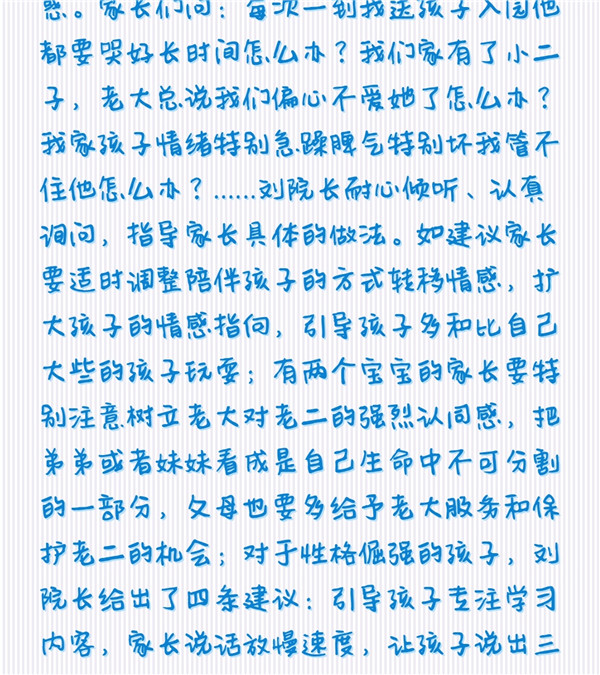 惑。家长们问：每次一到我送孩子入园他
都要哭好长时间怎么办？我们家有了小二
子，老大总说我们偏心不爱她了怎么办？
我家孩子情绪特别急躁脾气特别坏我管不
住他怎么办？……刘院长耐心倾听、认真
询问，指导家长具体的做法。如建议家长
要适时调整陪伴孩子的方式转移情感，扩
大孩子的情感指向，引导孩子多和比自己
大些的孩子玩耍；有两个宝宝的家长要特
别注意树立老大对老二的强烈认同感，把
弟弟或者妹妹看成是自己生命中不可分割
的一部分，父母也要多给予老大服务和保
护老二的机会；对于性格倔强的孩子，刘
院长给出了四条建议：引导孩子专注学习
内容，家长说话放慢速度，让孩子说出三